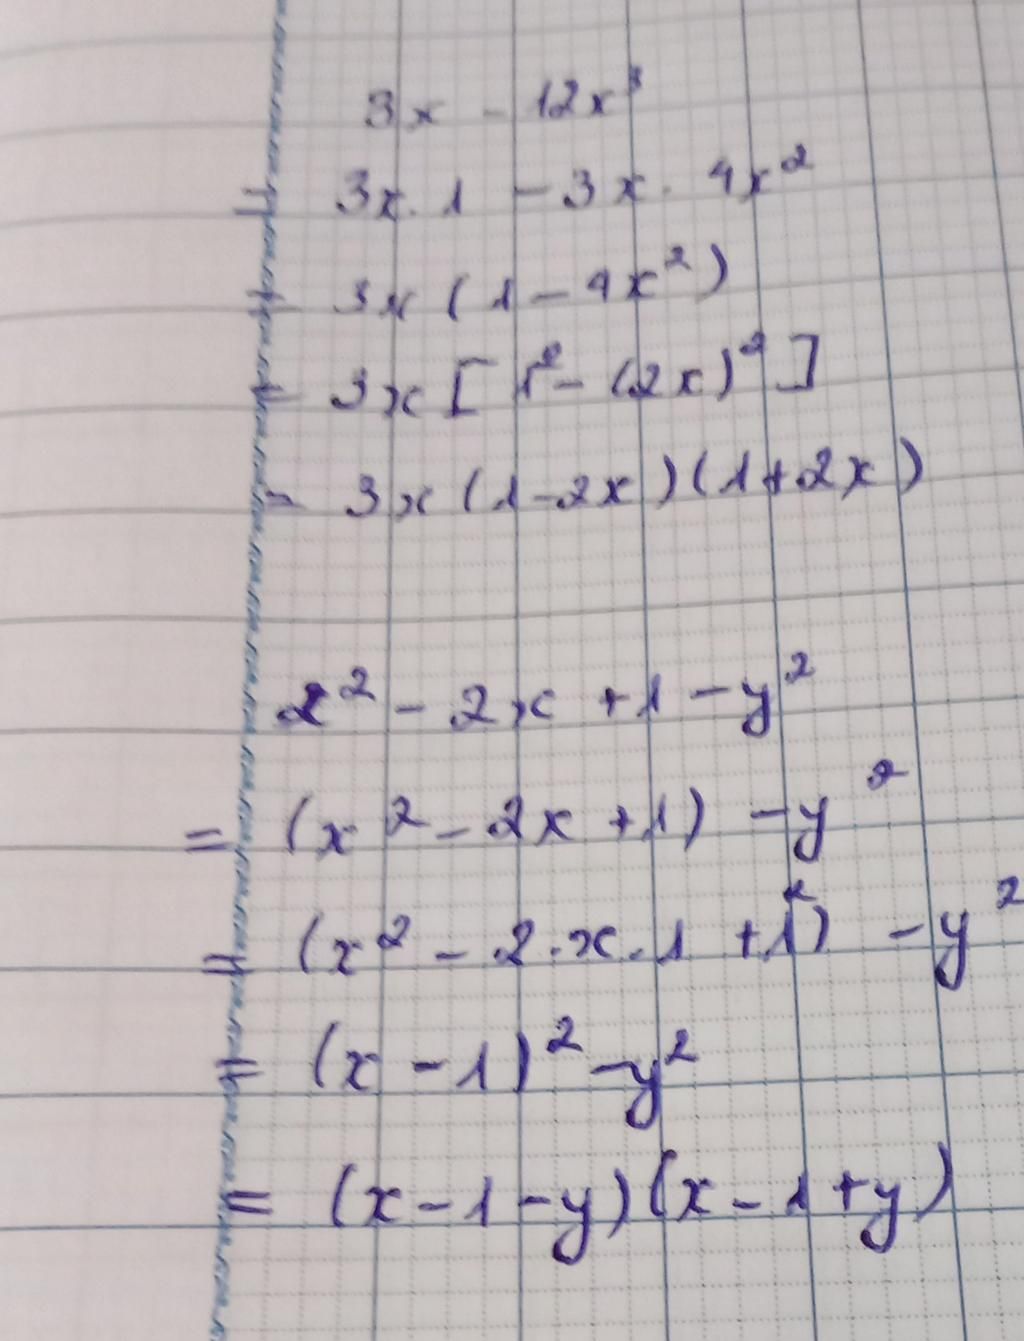 3x - 12x³
= 3x . 1 - 3x . 4x²
= 3x (1 - 4x²)
= 3x [1² - (2x)²]
= 3x (1 - 2x) (1 + 2x)
x² - 2x + 1 - y²
= (x² - 2x + 1) - y²
= (x² - 2 . x . 1 + 1²) - y²
= (x - 1)² - y²
= (x - 1 - y) (x - 1 + y)